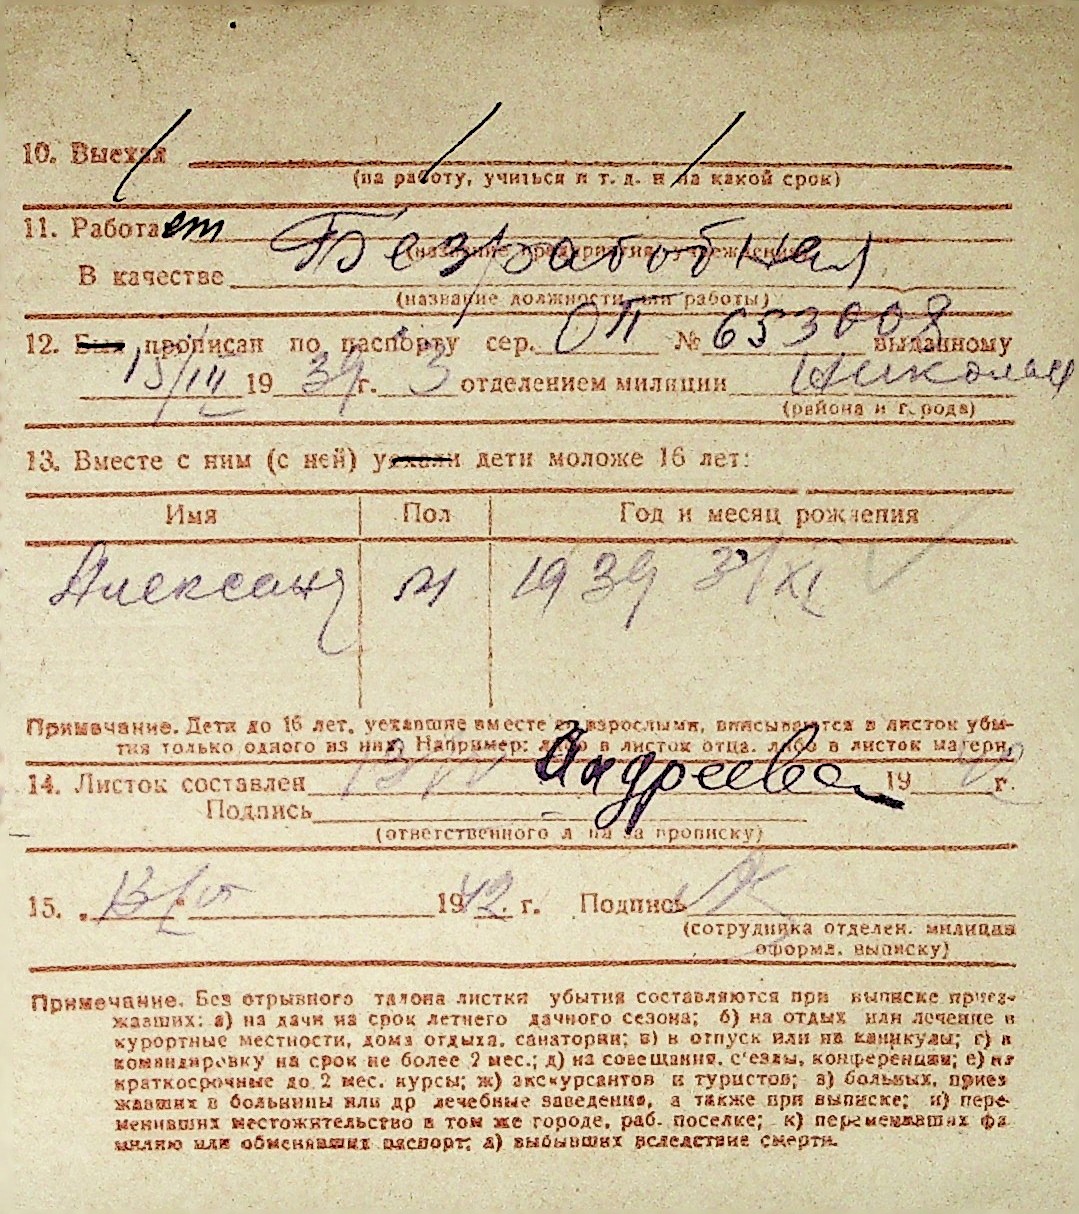 10. Выехал
(на работу, учиться и т. д. и на какой срок)
11. Работает Безработная
(название предприятия, учреждения)
В качестве
(название должности или работы)
12. Был прописан по паспорту сер. ОП № 653008 выданному
15/III 1939 г. 3 отделением милиции Николаев
(района и города)
13. Вместе с ним (с ней) уехали дети моложе 16 лет:
Имя Пол Год и месяц рождения
Александр м 1939 31/XI
Примечание. Дети до 16 лет, уехавшие вместе со взрослыми, вписываются в листок убы-
тия только одного из них. Например: либо в листок отца, либо в листок матери.
14. Листок составлен Андреева 1942 г.
Подпись
(ответственного лица за прописку)
15. 1942 г. Подпись
(сотрудника отделен. милиции
оформл. выписку)
Примечание. Без отрывного талона листки убытия составляются при выписке приез-
жавших: а) на дачи на срок летнего дачного сезона; б) на отдых или лечение в
курортные местности, дома отдыха, санатории; в) в отпуск или на каникулы; г) в
командировку на срок не более 2 мес.; д) на совещания, с'езды, конференции; е) на
краткосрочные до 2 мес. курсы; ж) экскурсантов и туристов; з) больных, приез
жавших в больницы или др лечебные заведения, а также при выписке; и) пере-
менивших местожительство в том же городе, раб. поселке; к) переменивших фа
милию или обменявших паспорт; л) выбывших вследствие смерти.